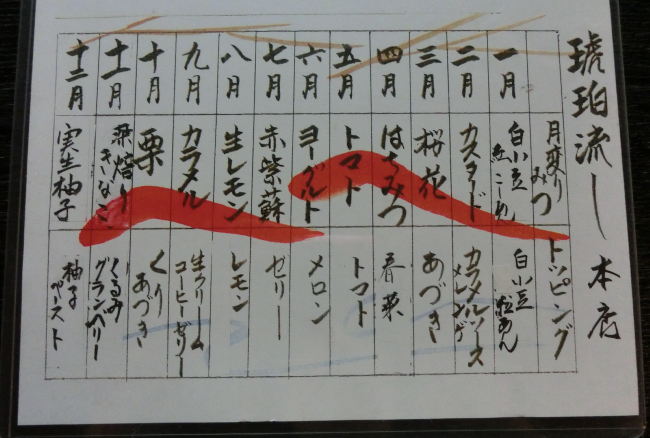 琥珀流し 本店
月変り みつ
トッピング
一月
白小豆
白小豆 粒あん
二月
カスタード
カラメルソース
メレンゲ
三月
桜花
あづき
四月
はちみつ
春菜
五月
トマト
トマト
六月
ヨーグルト
メロン
七月
赤紫蘇
ゼリー
八月
生レモン
レモン
九月
カラメル
生クリーム
コーヒーゼリー
十月
栗
くり
あづき
十一月
きなこ
くるみ
グランベリー
十二月
実生柚子
柚子
ペースト